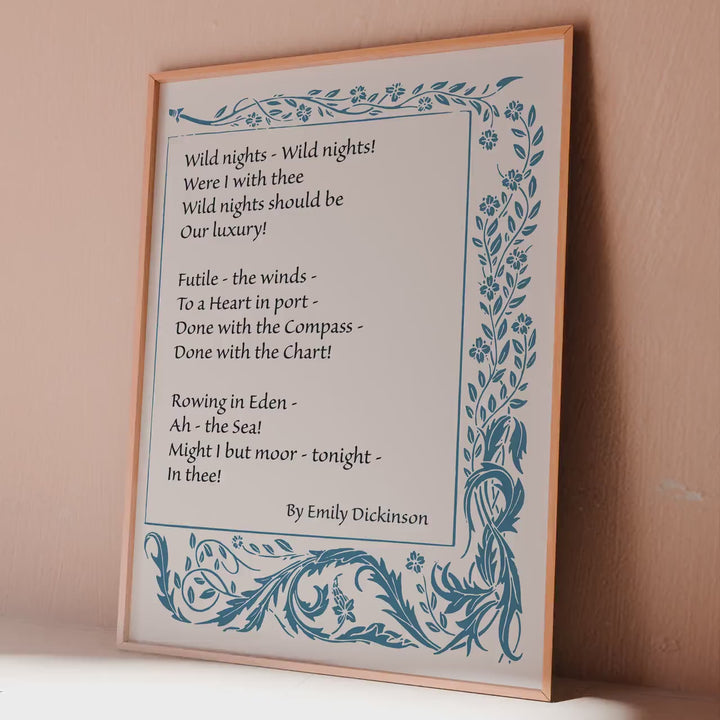 Wild nights - Wild nights!
Were I with thee
Wild nights should be
Our luxury!
Futile - the winds -
To a Heart in port -
Done with the Compass -
Done with the Chart!
Rowing in Eden -
Ah - the Sea!
Might I but moor - tonight -
In thee!
By Emily Dickinson